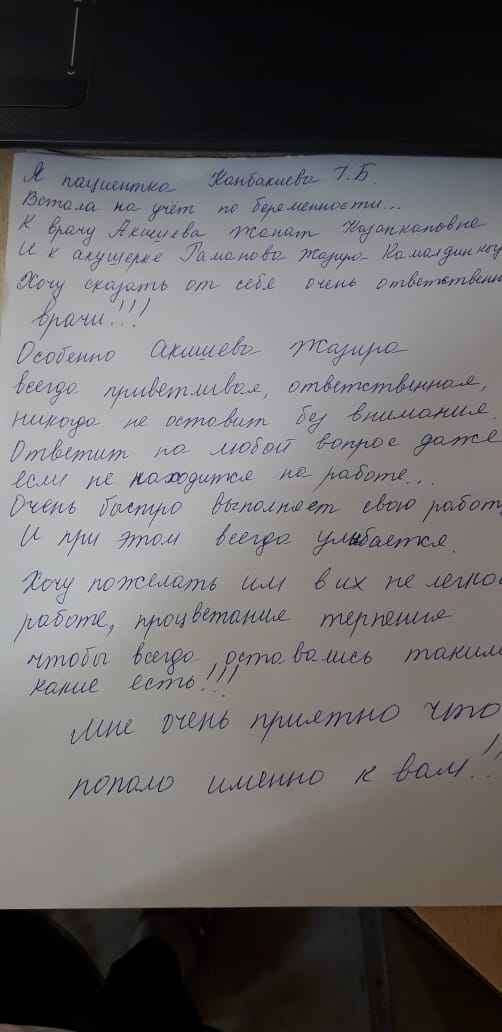 Я пациентка Канбакиева Г.Б.
Встала на учёт по беременности...
К врачу Акишева Жанат Казапкаповне
И к акушерке Раманова Жазира Камалдин
Хочу сказать от себя очень ответственн
врачи!!!
Особенно Акишева Жазира
всегда приветливая, ответственная,
никогда не оставит без внимания.
Ответит на любой вопрос даже
если не находится на работе...
Очень быстро выполняет свою работ
И при этом всегда улыбается.
Хочу пожелать им в их не легко
работе, процветания терпения
чтобы всегда оставались таким
какие есть!!!
Мне очень приятно что
попало именно к вам!!